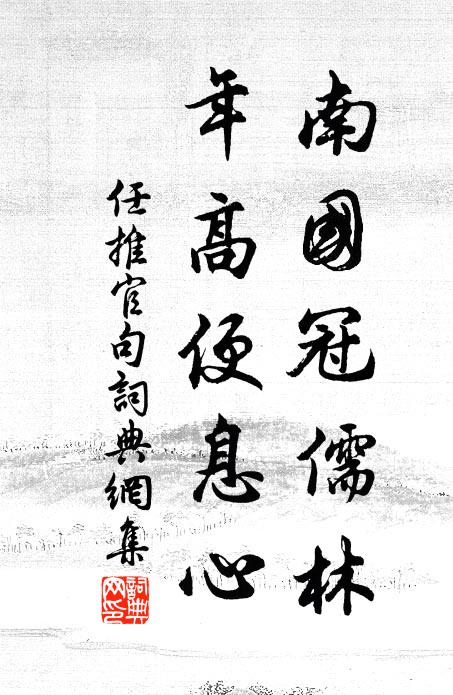 南國冠儒林
年高便息心
任推官句詞典網集
詞典網印